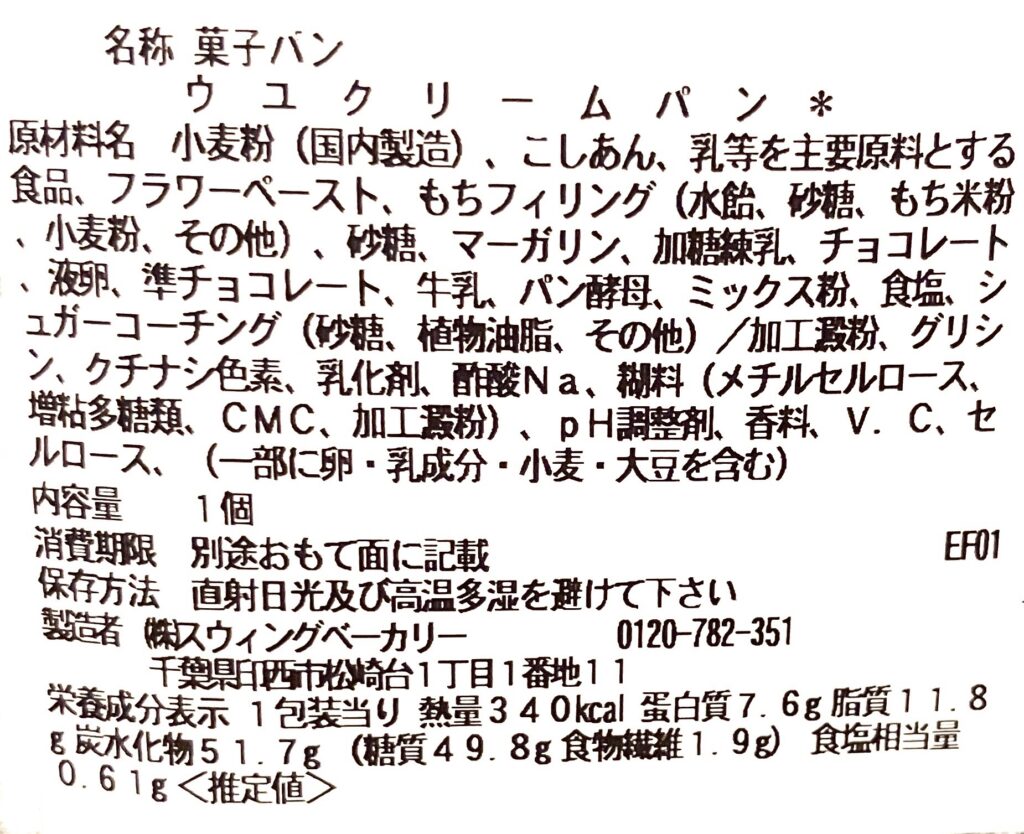 名称 菓子パン
ウユクリームパン＊
原材料名 小麦粉（国内製造）、こしあん、乳等を主要原料とする
食品、フラワーペースト、もちフィリング（水飴、砂糖、もち米粉
、小麦粉、その他）、砂糖、マーガリン、加糖練乳、チョコレート
、液卵、準チョコレート、牛乳、パン酵母、ミックス粉、食塩、シ
ュガーコーチング（砂糖、植物油脂、その他）／加工澱粉、グリシ
ン、クチナシ色素、乳化剤、酢酸Ｎａ、糊料（メチルセルロース、
増粘多糖類、ＣＭＣ、加工澱粉）、ｐＨ調整剤、香料、Ｖ．Ｃ、セ
ルロース、（一部に卵・乳成分・小麦・大豆を含む）
内容量 １個
消費期限 別途おもて面に記載 EF01
保存方法 直射日光及び高温多湿を避けて下さい
製造者 ㈱スウィングベーカリー 0120-782-351
千葉県印西市松崎台１丁目１番地１１
栄養成分表示 １包装当り 熱量３４０kcal 蛋白質７.６g 脂質１１.８
g 炭水化物５１.７g （糖質４９.８g 食物繊維１.９g） 食塩相当量
０.６１g＜推定値＞